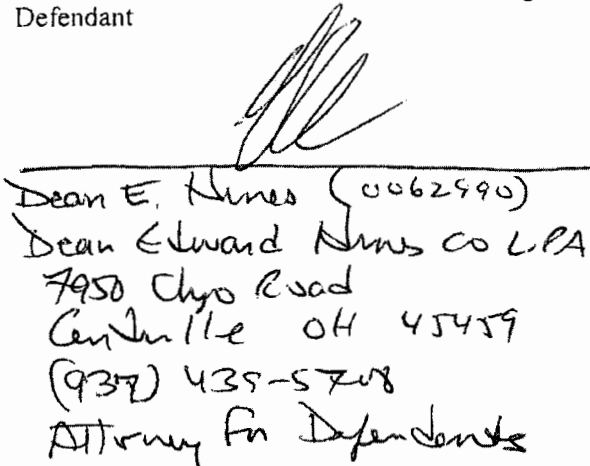 Defendant
Dean E. Hines (0062990)
Dean Edward Hines Co LPA
7950 Clyo Road
Centerville OH 45459
(937) 435-5708
Attorney for Defendants